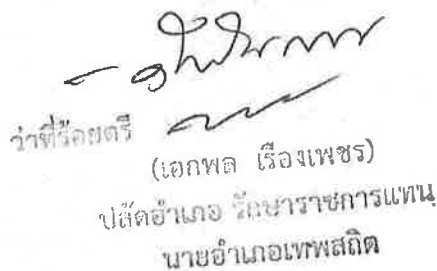 ว่าที่ร้อยตรี
(เอกพล เรืองเพชร)
ปลัดอำเภอ รักษาราชการแทน
นายอำเภอเทพสถิต